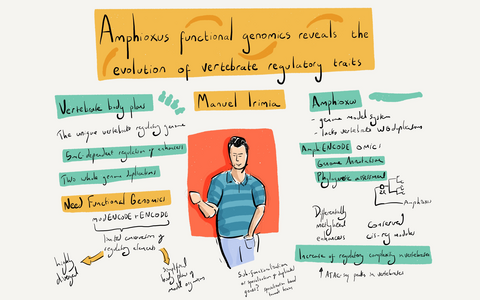 Amphioxus functional genomics reveals the
evolution of vertebrate regulatory traits
Manuel Irimia
Vertebrate body plans
The unique vertebrate regulatory genome
5mC dependent regulation of enhancers
Two whole genome duplications
Need Functional Genomics
modENCODE + ENCODE
limited conservation of
regulatory elements
highly
diverged
simplified
body plans of
model organisms
Amphioxus
- genome model system
- lacks vertebrate WG duplications
AmphiENCODE OMICS
Genome Annotation
Phylogenetic assessment
Amphioxus
Differentially
methylated
enhancers
Conserved
cis-reg modules
Increase of regulatory complexity in vertebrates
↑ ATAC-seq peaks in vertebrates
Sub-functionalisation
or specialisation of duplicated
genes? specialisation based